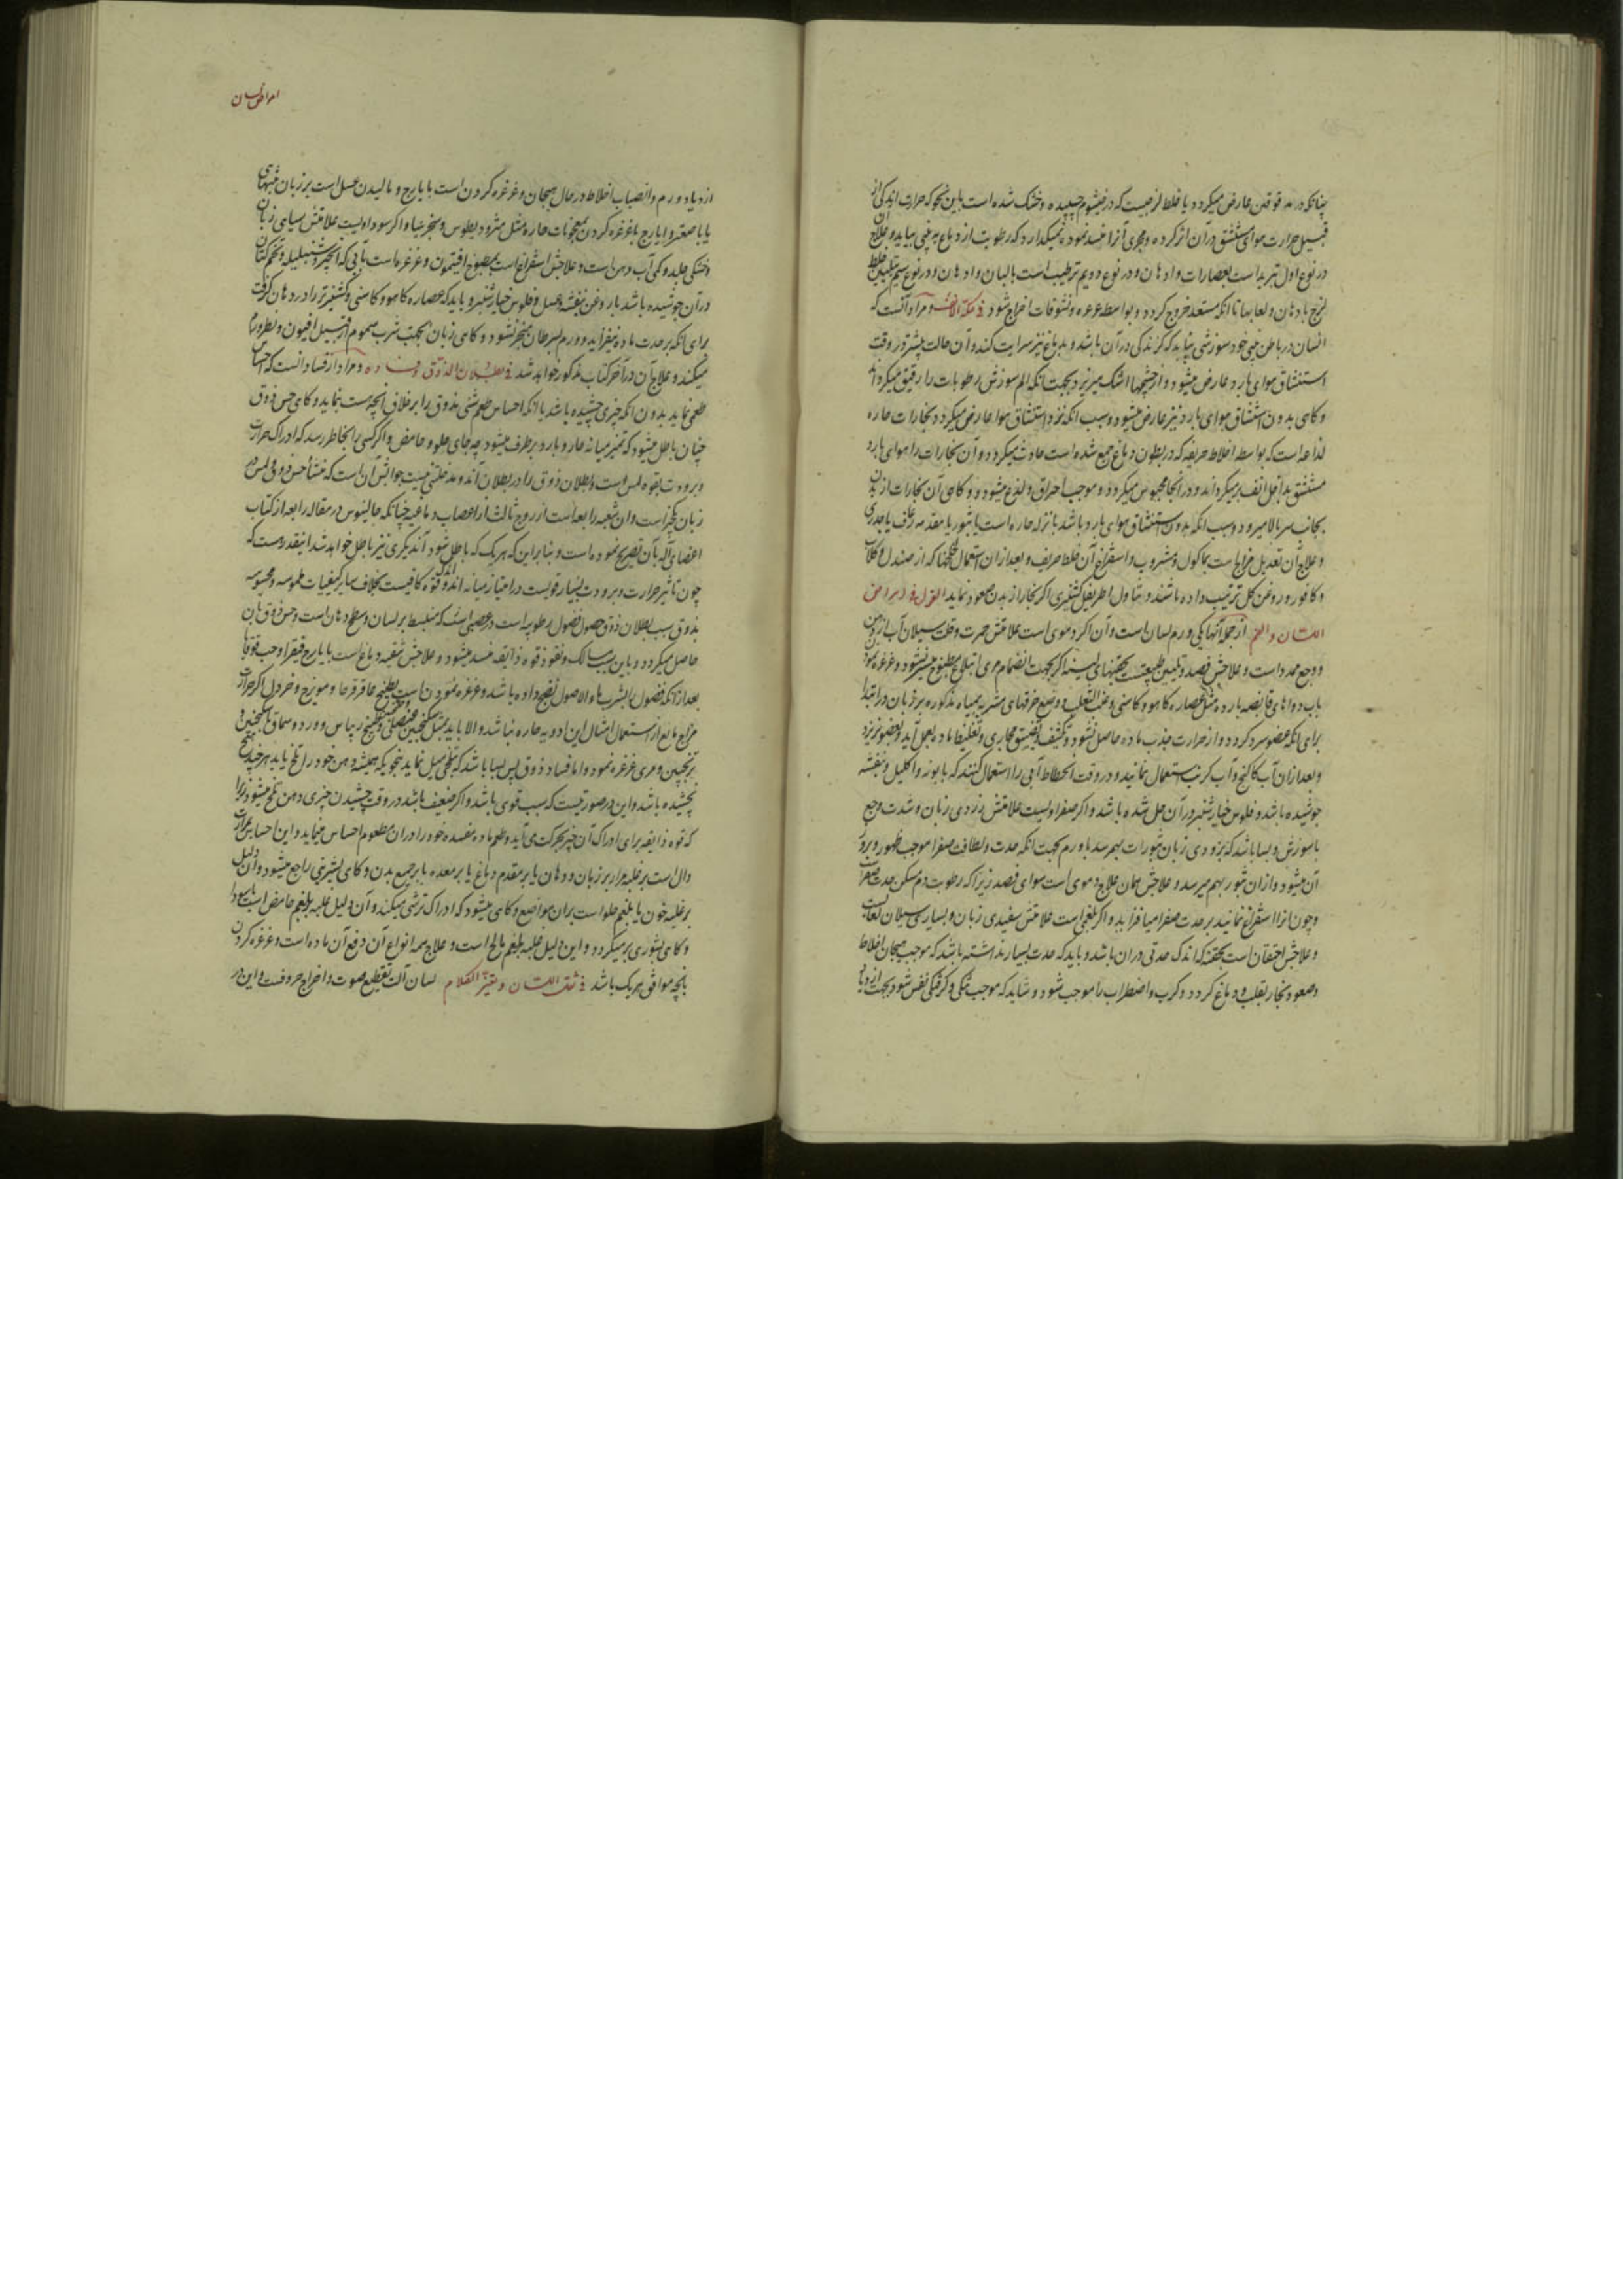 چنانکه در مه قوقس عارض میکردد یا خلط لزجیست که در خیشوم چسپیده و خشک شده است باین نحو که حرارت اندکی از
قبیل حرارت هوای مستنشق در آن اثر کرده و مجری آنرا منسد نموده نمیکذارد که رطوبت از دماغ به بینی بیاید و علاج آن
در نوع اول تبرید است بعصارات و ادهان و در نوع دویم ترطیب است بالبان و ادهان و در نوع سیم تلیین خلط
لزج بادهان و لعابها تا انکه مستعد خروج کردد و بواسطه غرغره و نشوقات اخراج شود فی حکة الانف و مراد آنست که
انسان در باطن بینی خود سوزشی میابد که کزندکی در آن باشد و بدماغ نیز سرایت کند و آن حالت بیشتر در وقت
استنشاق هوای بارد عارض میشود و از چشمها اشک میریزد بجهت انکه الم سوزش رطوبات را رقیق میکرداند
و کاهی بدون استنشاق هوای بارد نیز عارض میشود و سبب انکه نزد استنشاق هوا عارض میکردد بخارات حاره
لذاعه است که بواسطه اخلاط حریفه که در بطون دماغ جمع شده است حادث میکردد و آن بخارات را هوای بارد
مستنشق بداخل انف برمیکرداند و در انجا محبوس میکردد و موجب احراق و لذع میشود و کاهی آن بخارات از بدن
بجانب سر بالا میرود و سبب انکه بدون استنشاق هوای بارد باشد یا نزله حاره است یا بثور یا مقدمه رعاف یا جدری
و علاج آن تعدیل مزاج است بماکول و مشروب و استفراغ آن خلط حریف و بعد از ان استعمال لخلخها که از صندل و کلاب
و کافور و روغن کل ترتیب داده باشند و تناول اطریفل کشنیزی اکر بخار از بدن صعود نماید القول فی امراض
اللسان و الفم از جمله آنها یکی ورم لسان است و آن اکر دموی است علامتش حمرت و قلت سیلان آب از دهن
و وجع ممدد است و علاجش فصد و تلیین طبیعت بحقنهای لینه اکر بجهت انضمام مری ابتلاع مطبوخ میسر نشود و غرغره نمودن
باب دواهای قابضه بارده مثل عصاره کاهو و کاسنی و عنب الثعلب و وضع خرقهای مشربه بمیاه مذکوره بر زبان در ابتدا
برای انکه عضو سرد کردد و از حرارت جذب ماده حاصل نشود و تکثیف و تضییق مجاری و تغلیظ ماده بعمل آید و بعضو نریزد
و بعد از ان آب کاکنج و آب کرنب استعمال نمایند و در وقت انحطاط آبی را استعمال کنند که بابونه و اکلیل و بنفشه
جوشیده باشد و فلوس خیارشنبر در آن حل شده باشد و اکر صفراویست علامتش زردی زبان و شدت وجع
با سوزش و بسا باشد که بزودی زبان بثورات بهم رسد با ورم بجهت انکه حدت و لطافت صفرا موجب ظهور و بروز
آن میشود و از ان بثور بهم میرسد و علاجش همان علاج دموی است سوای فصد زیرا که رطوبت دم مسکن حدت صفراست
و چون انرا استفراغ نمایند بر حدت صفرا میافزاید و اکر بلغمی است علامتش سفیدی زبان و بسیاری سیلان لعابست
و علاجش احتقان است بحقنه که اندک حدتی در ان باشد و باید که حدت بسیار نداشته باشد که موجب هیجان اخلاط
و صعود بخار بقلب و دماغ کردد و کرب و اضطراب را موجب شود و شاید که موجب تنکی و کرفتکی نفس شود بجهت ازدیاد
امراض لسان
ازدیاد ورم و انصباب اخلاط در حال هیجان و غرغره کردن است بایارج و مالیدن عسل است بر زبان بتنهائی
یا با صعتر و ایارج یا غرغره کردن بمعجونات حاره مثل مثرودیطوس و سنجرینیا و اکر سوداویست علامتش سیاهی زبان
و خشکی جلد و کمی آب دهن است و علاجش استفراغ است بمطبوخ افتیمون و غرغره است بآبی که انجیر و شنبلیله و تخم کتان
در آن جوشیده باشد با روغن بنفشه و عسل و فلوس خیارشنبر و باید که عصاره کاهو و کاسنی و کشنیز تر را در دهان کرفت
برای انکه بر حدت ماده نیفزاید و ورم بسرطان منجر نشود و کاهی زبان بجهت شرب سموم از قبیل افیون و فطر ورم
میکند و علاج آن در آخر کتاب مذکور خواهد شد فی بطلان الذوق و فساده و مراد از فساد انست که احساس
طعمی نماید بدون انکه چیزی چشیده باشد یا انکه احساس طعم شئ مذوق را بر خلاف انچه هست بنماید و کاهی حس ذوق
چنان باطل میشود که تمیز میانه حار و بارد برطرف میشود چه جای حلو و حامض و اکر کسی را بخاطر رسد که ادراک حرارت
و برودت بقوه لمس است و بطلان ذوق را در بطلان آن مدخلتی نیست جوابش آن است که منشأ حس ذوقی و لمسی
زبان یکجز است و ان شعبه رابعه است از زوج ثالث از اعصاب دماغیه چنانکه جالینوس در مقاله رابعه از کتاب
اعضای آله بآن تصریح نموده است و بنا بر این که هر یک که باطل شود آندیکری نیز باطل خواهد شد اینقدر هست که
چون تاثیر حرارت و برودت بسیار قویست در امتیاز میانه اندو اندک قوه کافیست بخلاف سایر کیفیات ملموسه و محسوسه
بذوق سبب بطلان ذوق حصول فضول رطوبیه است در عصبی است که منبسط بر لسان و سطح دهان است و حس ذوق بان
حاصل میکردد و باین سبب مسالک و نفوذ قوه ذایقه منسد میشود و علاجش تنقیه دماغ است بایارج فیقرا و حب قوقایا
بعد از انکه فضول را بشربها و الاصول نضج داده باشند و غرغره نمودن است بطبیخ عاقرقرحا و مویزج و خردل اکر حرارت
مزاج مانع از استعمال امثال این ادویه حاره نباشد و الا باید بمثل سکنجبین عنصلی و طبیخ ریباس و ورد و سماق با سکنجبین و
ترنجبین و مری غرغره نمود و اما فساد ذوق پس بسا باشد که بتلخی میل نماید بنحویکه همیشه دهن خود را تلخ یابد هر چند هیچ
نچشیده باشد و این در صورتیست که سبب قوی باشد و اکر ضعیف باشد در وقت چشیدن چیزی دهن تلخ میشود زیرا
که قوه ذایقه برای ادراک آن چیز بحرکت می آید و طعم ماده مفسده خود را در ان مطعوم احساس مینماید و این احساس مرارت
دال است بر غلبه مرار بر زبان و دهان یا بر مقدم دماغ یا بر معده یا بر جمیع بدن و کاهی بشیرینی راجع میشود و آن دلیل
بر غلبه خون یا بلغم حلو است بر ان مواضع و کاهی میشود که ادراک ترشی میکند و آن دلیل غلبه بلغم حامض است یا سودا
و کاهی بشوری برمیکردد و این دلیل غلبه بلغم مالح است و علاج همه انواع آن دفع آن ماده است و غرغره کردن
بانچه موافق هر یک باشد فی ثقل اللسان و تغیر الکلام لسان آلت تقطیع صوت و اخراج حروفست و این بر